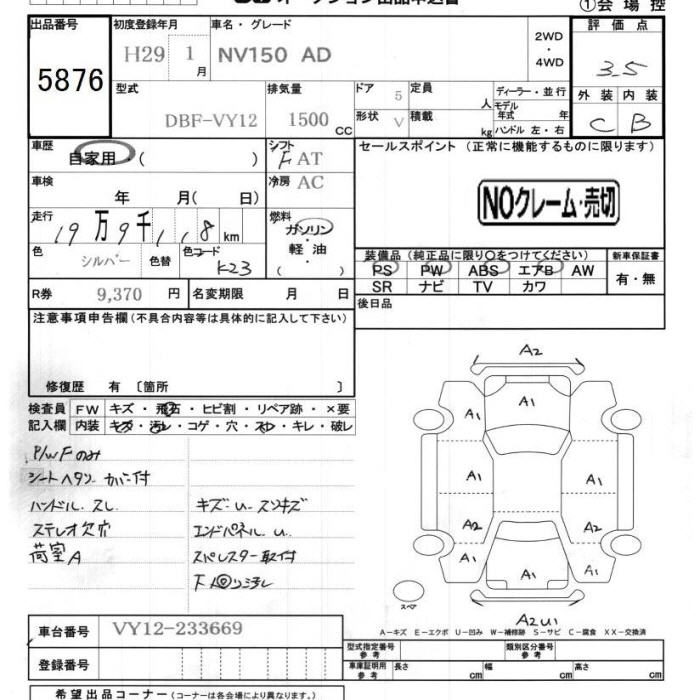 オークション出品申込書
①会場控
出品番号 初度登録年月 車名・グレード 2WD ・ 4WD 評価点
5876 H29 1月 NV150 AD 3.5
型式 排気量 ドア 定員 ディーラー・並行 外装 内装
DBF-VY12 1500 CC 5 人 モデル年式 年 C B
形状 V 積載 kg ハンドル 左・右
車歴 自家用・( ) シフト F AT セールスポイント (正常に機能するものに限ります)
車検 年 月( 日) 冷房 AC
NOクレーム・売切
走行 19万9千1,8km 燃料 ガソリン・軽・油 ( )
色 シルバー 色替 色コード K23
装備品 (純正品に限り○をつけてください) 新車保証書
PS PW ABS エアB AW 有・無
SR ナビ TV カワ
R券 9,370円 名変期限 月 日 後日品
注意事項申告欄(不具合内容等は具体的に記入して下さい)
修復歴 有 〔箇所 〕
検査員 FW キズ・飛石・ヒビ割・リペア跡・×要
記入欄 内装 キズ・汚レ・コゲ・穴・スレ・キレ・破レ
P/WFのみ
シートヘタリ カバー付
ハンドル スレ キズ・U・スリキズ
ステレオ欠穴 エンドパネル U
荷室A スペレスター取付
下回りシ浮し
A2
A1
A1 A1
A1 A1
A2 A2
A1 A1 A1
スペア
A2U1
A-キズ E-エクボ U-凹み W-補修跡 S-サビ C-腐食 XX-交換済
車台番号 VY12-233669
型式指定番号 参考 類別区分番号 参考
登録番号
車庫証明用 参考 長さ cm 幅 cm 高さ cm
希望出品コーナー (コーナーは各会場により異なります。)